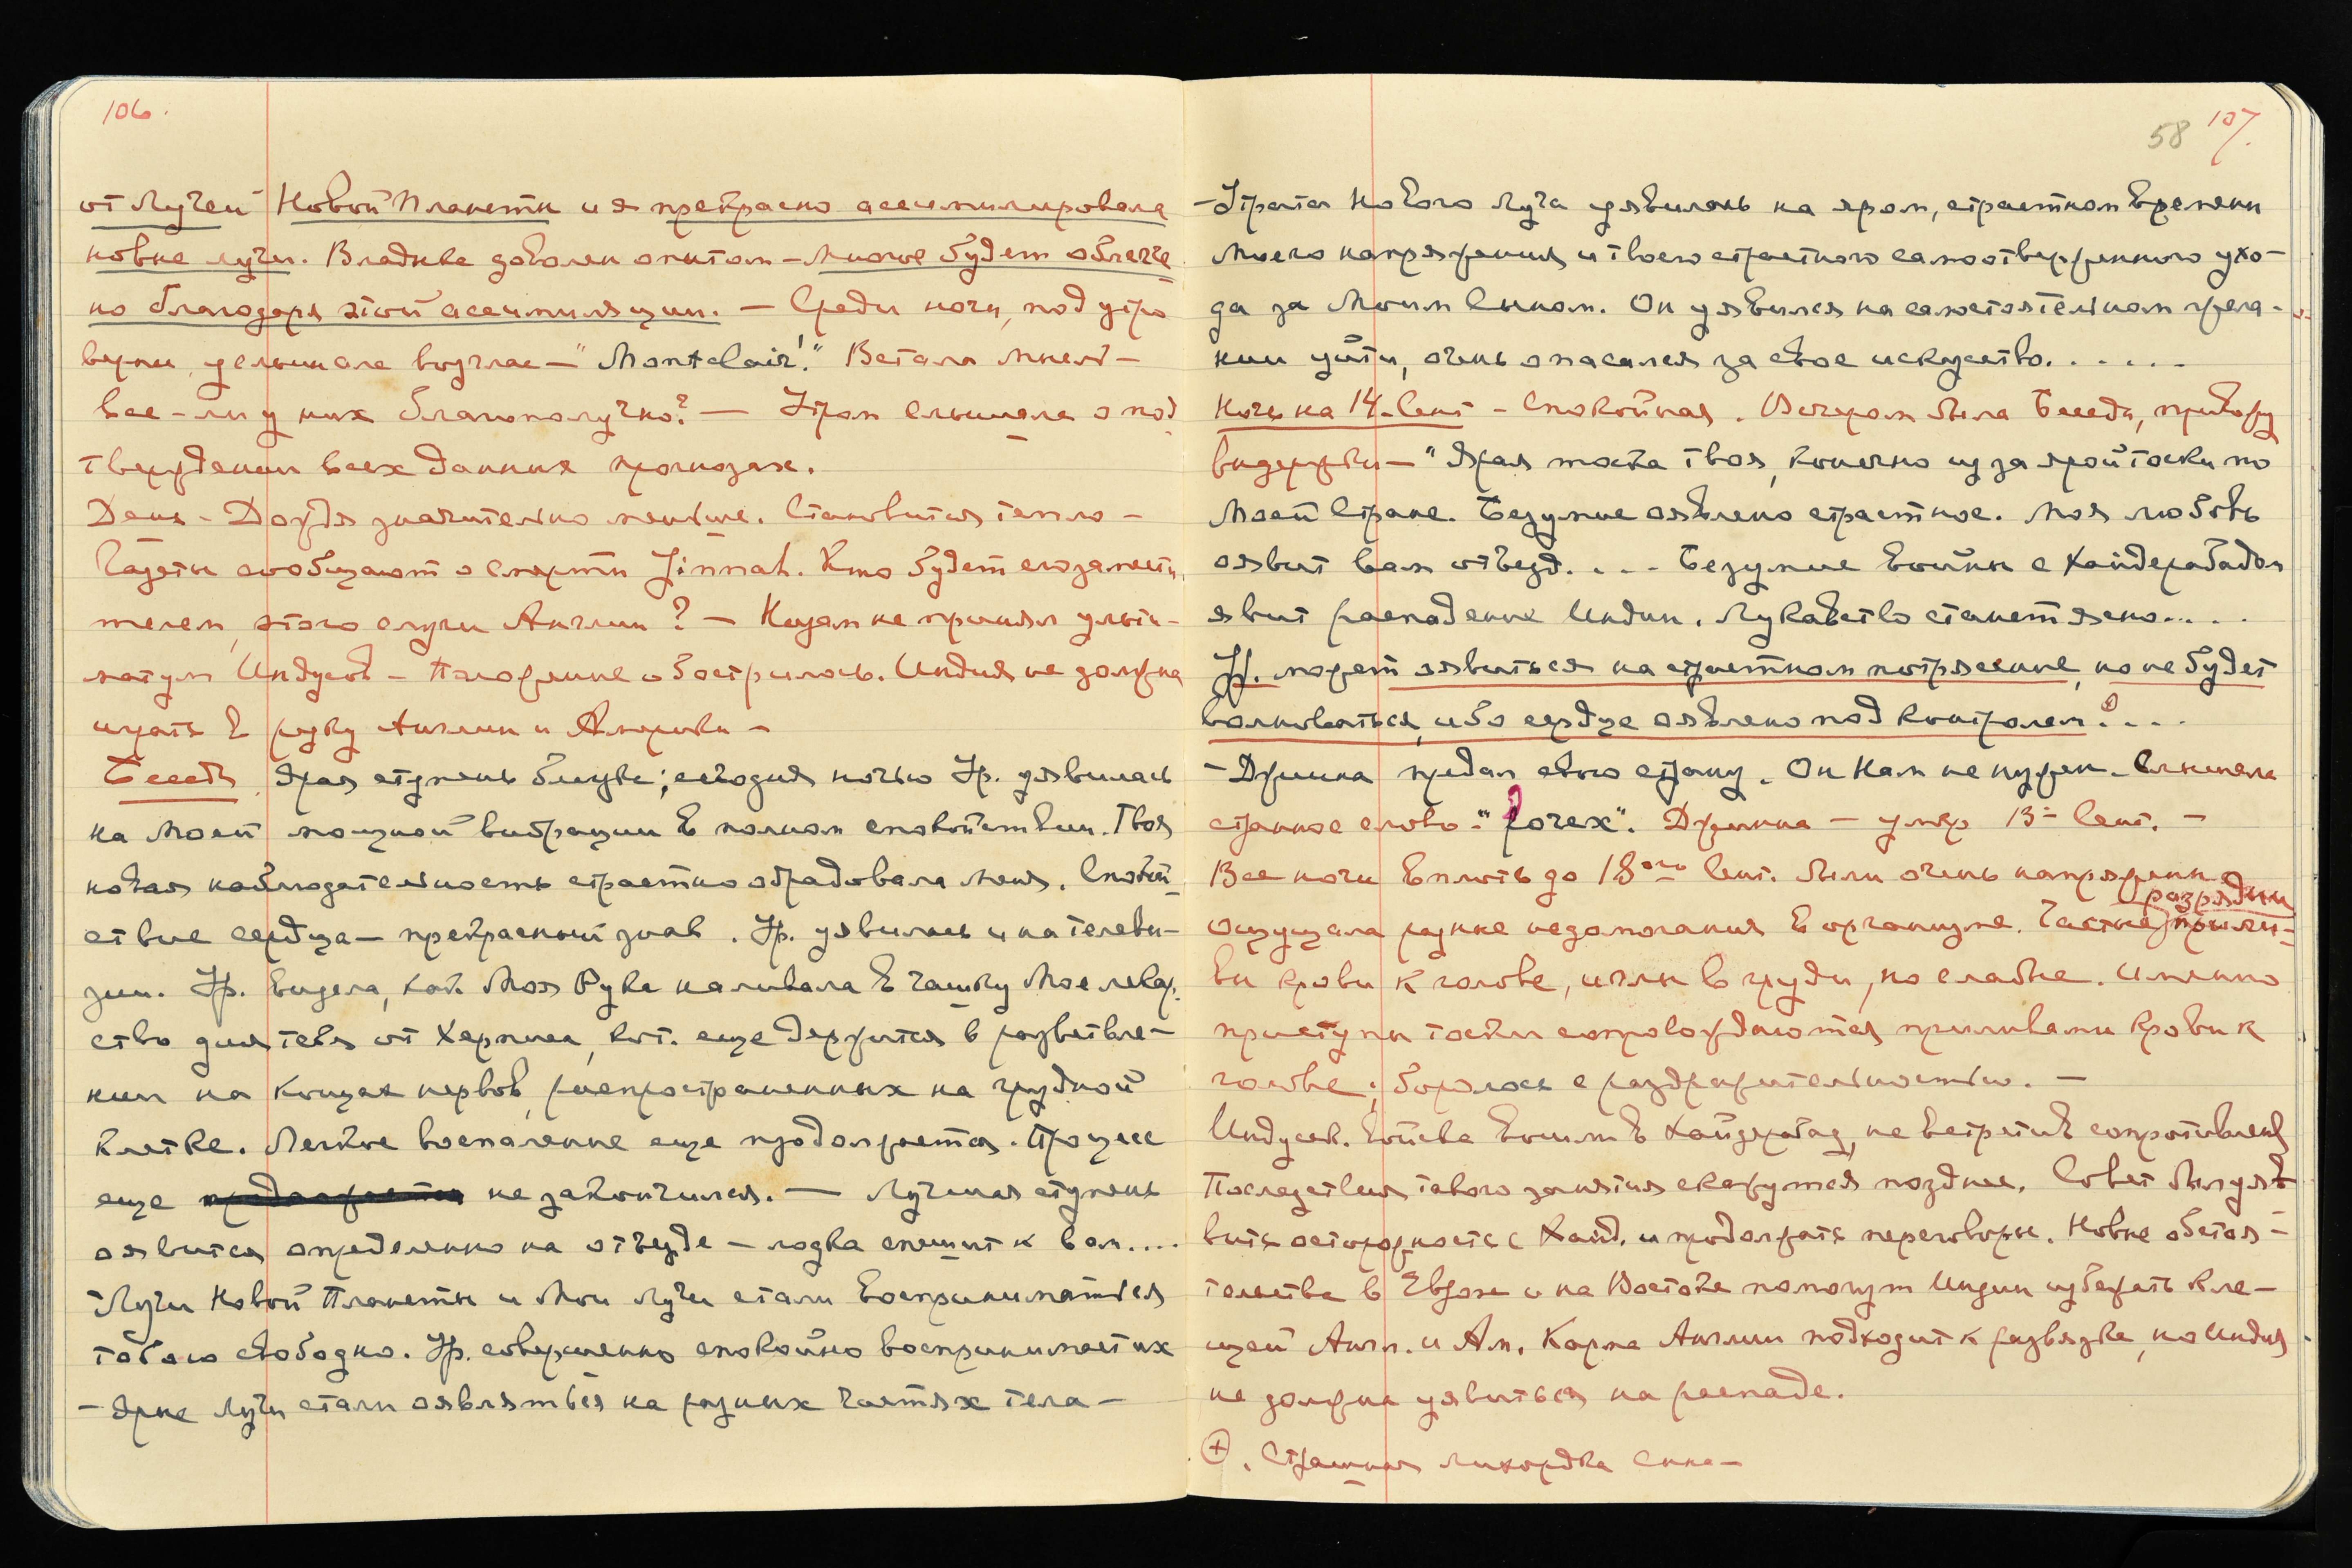 106.
от Лучей Новой Планеты и я прекрасно ассимилировала
новые лучи. Владыка доволен опытом – многое будет облегче
но благодаря этой ассимиляции. – Среди ночи, под утро
верно, услышала возглас – "Montclair!" Встала мысль –
все-ли у них благополучно? – Утром слышала о под
тверждении всех данных прогнозах.
День – Дождя значительно меньше. Становится тепло –
Газеты сообщают о смерти Jinnah. Кто будет его замести
телем, этого слуги Англии? – Низам не принял ульти-
матум Индусов – Положение обострилось. Индия не должна
играть в руку Англии и Америки –
Беседа. Ярая ступень близка; сегодня ночью Ур. уявилась
на Моей мощной вибрации в полном спокойствии. Твоя
новая наблюдательность страстно обрадовала Меня. Спокой-
ствие сердца – прекрасный знак. Ур. уявилась и на телеви-
зии. Ур. видела, как Моя Рука наливала в чашку Мое лекар-
ство для тебя от Херписа, кот. еще держится в разветвле-
нии на концах нервов, распространенных на грудной
клетке. Легкое воспаление еще продолжается. Процесс
еще не закончился. – Лучшая ступень
оявится определенно на отъезде – лодка спешит к вам....
Лучи Новой Планеты и Мои Лучи стали восприниматься
тобою свободно. Ур. совершенно спокойно воспринимает их
– Ярые Лучи стали оявляться на разных частях тела –
58 107.
– Утрата Нового Луча уявилась на яром, страстном времени
Моего напряжения и твоего страстного самоотверженного ухо-
да за Моим Сыном. Он уявился на самостоятельном жела-
нии уйти, очень опасался за свое искусство. . . . . .
Ночь на 14-Сент – Спокойная. Вечером была Беседа, привожу
выдержки – "Ярая тоска твоя, конечно из за ярой тоски по
Моей Стране. Безумие оявлено страстное. Моя любовь
оявит вам отъезд. . . . Безумие войны с Хайдерабадом
явит распадение Индии. Лукавство станет ясно.. . .
Ур. может оявиться на страстном потрясении, но не будет
волноваться, ибо сердце оявлено под контролем. . . .
– Джинна предал свою страну. Он Нам не нужен. Слышала
странное слово – Джинна – умер 13- Сент. –
Все ночи вплоть до 18ого Сент. были очень напряжены
разрядки
ощущала разные недомогания в организме. Частые прили-
вы крови к голове, иглы в груди, но слабые. Именно
приступы тоски сопровождаются приливами крови к
голове; борюсь с раздражительностью. –
Индусск. войска вошли в Хайдерабад, не встретив сопротивления
Последствия такого занятия скажутся позднее. Совет был уяв
вить осторожность с Хайд. и продолжать переговоры. Новые обстоя-
тельства в Европе и на Востоке помогут Индии избежать кле-
щей Англ. и Ам. Карма Англии подходит к развязке, но Индия
не должна уявиться на распаде.
⊕. Страшная лихорадка